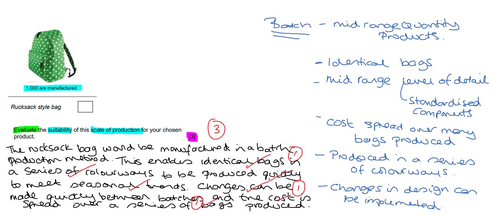 1,000 are manufactured
Rucksack style bag
Evaluate the suitability of this scale of production for your chosen
product.
3
The rucksack bag would be manufactured in a batch
production method. This enables identical bags in
a series of colourways to be produced quickly
to meet seasonal trends. Changes can be
made quickly between batches and the cost is
spread over a series of bags produced.
Batch - mid range quantity
products.
- Identical bags
- mid range level of detail
Standardised
components
- cost spread over many
bags produced
- Produced in a series
of colourways.
- Changes in design can
be implemented